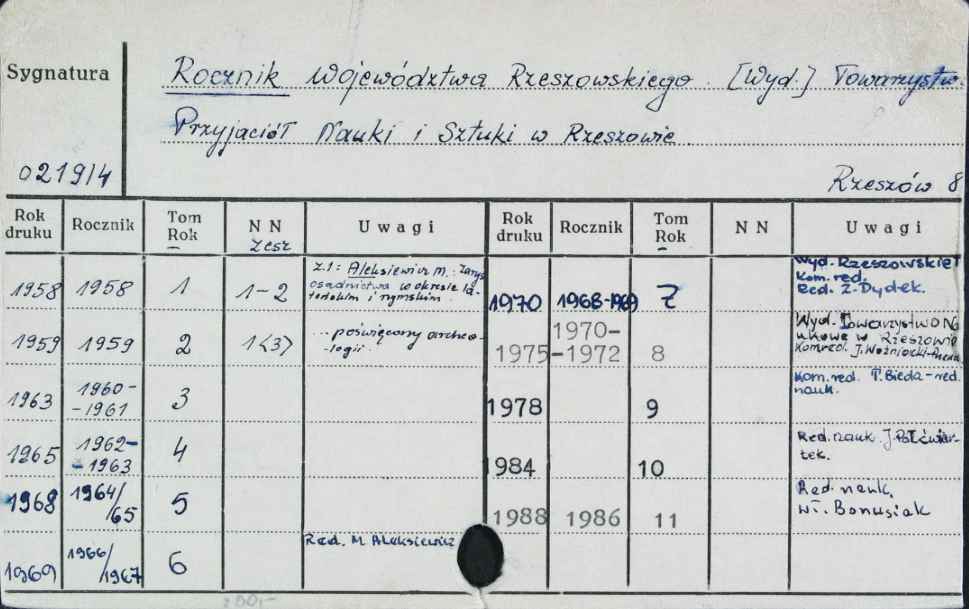 Sygnatura
Rocznik Województwa Rzeszowskiego. [Wyd.] Towarzystw.
Przyjaciół Nauki i Sztuki w Rzeszowie
0219/4
Rzeszów 8
Rok druku Rocznik Tom Rok NN zesz Uwagi Rok druku Rocznik Tom Rok NN Uwagi
1958 1958 1 1-2
z.1: Aleksiewicz M.: Zarys
osadnictwa w okresie la-
teńskim i rzymskim
1970 1968-1969 7
Wyd. Rzeszowskie T
Kom. red.
Red. Z. Dydek.
1959 1959 2 1<3>
...poświęcony archeo-
-logii..
1975 1970-
-1972 8
Wyd. Towarzystwo Na
ukowe w Rzeszowie
Kom. red. J.
1963 1960-
-1961 3
1978 9
Kom. red. T. Bieda-red.
nauk.
1965 1962-
-1963 4
1984 10
Red. nauk. J. Półćwiar-
tek.
1968 1964/
/65 5
1988 1986 11
Red. nauk.
Wł. Bonusiak
1969 1966/
/1967 6
Red. M. Aleksiewicz